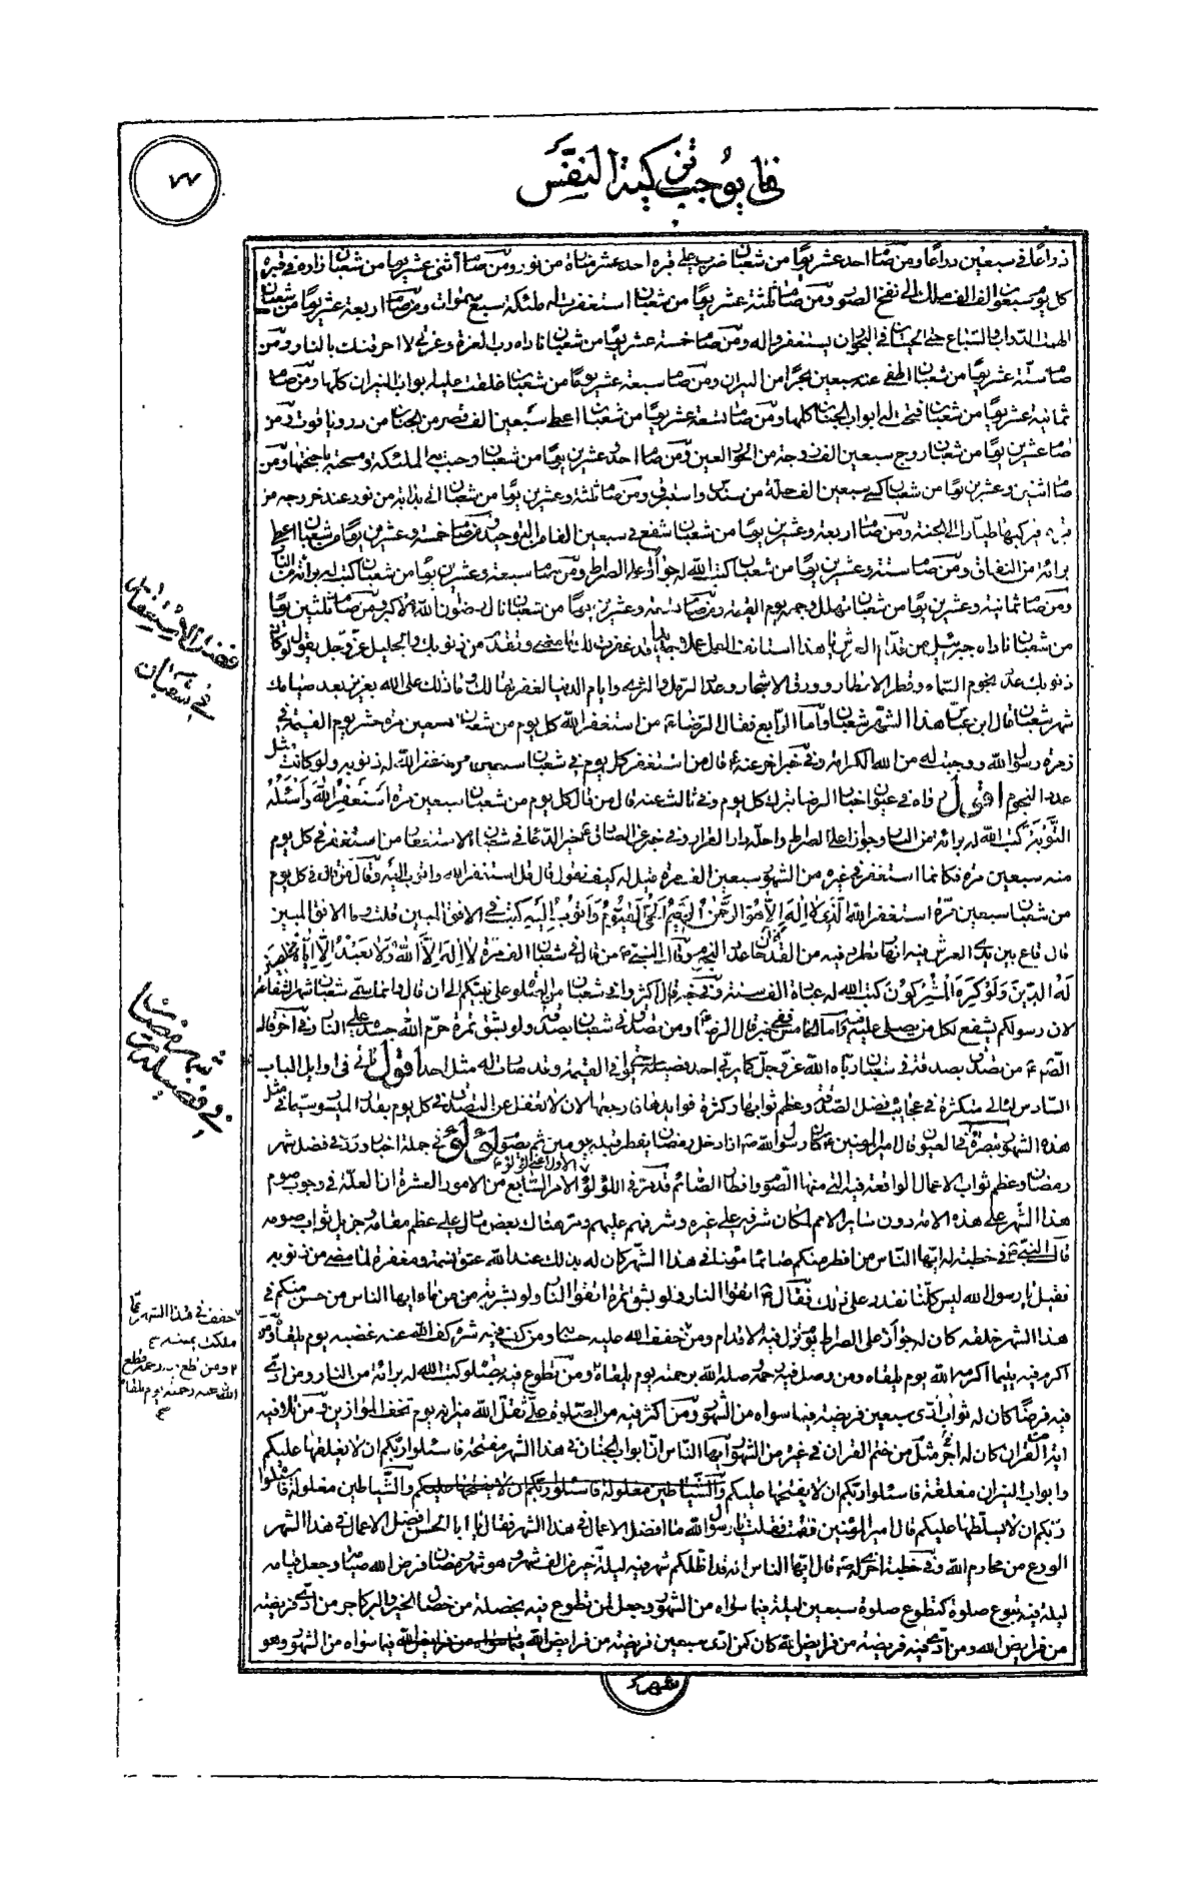 فيما يوجب تزكية النفس
٧٧
ذراعًا في سبعين ذراعًا ومن صام احد عشر يومًا من شعبان ضرب على قبره احد عشر منارة من نور ومن صام اثنى عشر يومًا من شعبان زاره في قبره
كل يوم سبعون الف ملك الى نفخ الصور ومن صام ثلثة عشر يومًا من شعبان استغفرت له ملئكة سبع سموات ومن صام اربعة عشر يومًا من شعبان
الهمت الدواب والسباع حتى الحيتان في البحور ان يستغفروا له ومن صام خمسة عشر يومًا من شعبان ناداه رب العزة وعزتي لا احرقتك بالنار ومن
صام ستة عشر يومًا من شعبان اطفى عنه سبعين بحرًا من النيران ومن صام سبعة عشر يومًا من شعبان غلقت عليه ابواب النيران كلها ومن صام
ثمانية عشر يومًا من شعبان فتحت له ابواب الجنان كلها ومن صام تسعة عشر يومًا من شعبان اعطى سبعين الف قصر من الجنان من در وياقوت ومن
صام عشرين يومًا من شعبان زوج سبعين الف زوجة من الحور العين ومن صام احد وعشرين يومًا من شعبان رحبت به الملئكة ومسحته باجنحتها ومن
صام اثنين وعشرين يومًا من شعبان كسى سبعين الف حلة من سندس واستبرق ومن صام ثلثة وعشرين يومًا من شعبان اتى بدابة من نور عند خروجه من
قبره فيركبها طيارًا الى الجنة ومن صام اربعة وعشرين يومًا من شعبان شفع في سبعين الفا من اهل التوحيد ومن صام خمسة وعشرين يومًا من شعبان اعطى
برائة من النفاق ومن صام ستة وعشرين يومًا من شعبان كتب الله له جوازًا على الصراط ومن صام سبعة وعشرين يومًا من شعبان كتب له برائة من النار
ومن صام ثمانية وعشرين يومًا من شعبان تهلل وجهه يوم القيمة ومن صام تسعة وعشرين يومًا من شعبان نال رضوان الله الاكبر ومن صام ثلثين يومًا
من شعبان ناداه جبرئيل من قدام العرش يا هذا استانف العمل عملا جديدا قد غفر لك ما مضى وتقدم من ذنوبك والجليل عز وجل يقول لو كان
ذنوبك عدد نجوم السماء وقطر الامطار وورق الاشجار وعدد الرمل والثرى وايام الدنيا لغفرتها لك وما ذلك على الله بعزيز بعد صيامك
شهر شعبان قال ابن عباس هذا الشهر شعبان واما الرابع فقال الرضا ع من استغفر الله كل يوم من شعبان سبعين مرة حشر يوم القيمة في
زمرة رسول الله ووجبت له من الله الكرامة وفي خبر اخر عنه ع قال من استغفر كل يوم في شعبان سبعين مرة غفر الله له ذنوبه ولو كانت مثل
عدد النجوم اقول رواه في عيون اخبار الرضا بترك كل يوم وفي ثالث عنه قال من قال كل يوم من شعبان سبعين مرة استغفر الله واسئله
التوبة كتب الله له برائة من النار وجوازا على الصراط واحله دار القرار وفي خبر عن الصادق ع خير الدعا في شعبان الاستغفار من استغفر في كل يوم
منه سبعين مرة فكانما استغفر في غيره من الشهور سبعين الف مرة قيل له كيف نقول قال قل استغفر الله واتوب اليه وقال من قال في كل يوم
من شعبان سبعين مرة استغفر الله الذي لا اله الا هو الرحمن الرحيم الحي القيوم واتوب اليه كتب في الافق المبين قلت وما الافق المبين
قال قاع بين يدي العرش فيه انهار تطرد فيه من القدحان عدد النجوم وقال النبي ص من قال في شعبان الف مرة لا اله الا الله ولا نعبد الا اياه مخلصين
له الدين ولو كره المشركون كتب الله له عبادة الف سنة وفي خبر قال اكثروا في شعبان من الصلوة على نبيكم الى ان قال وانما سمى شعبان شهر الشفاعة
لان رسولكم يشفع لكل من يصلى عليه فيه واما الخامس ففي خبر قال الرضا ع ومن تصدق في شعبان بصدقة ولو بشق تمرة حرم الله جسده على النار وفي اخر قال
الصادق ع من تصدق بصدقة في شعبان رباه الله عز وجل كما يربى احدكم فصيله حتى يوافى القيمة وقد صارت له مثل احد اقول تأتي في اوايل الباب
السادس لئالى متكثرة في عجايب فضل الصدقة وعظم ثوابها وكثرة فوايدها فراجعها الان لا تغفل عن التصدق في كل يوم بقدر الميسور سيما في مثل
هذه الشهور تبصرة في العيون قال امير المؤمنين ع كان رسول الله ص اذا دخل رمضان يفطر قبله يومين ثم يصوم لؤلؤ في جملة اخبار وردت في فضل شهر
رمضان وعظم ثواب الاعمال الواقعة فيه التي منها الصوم وافطار الصائم قد مر في اللؤلؤ الامر السابع من الامور العشرة ان العلة في وجوب صوم
هذا الشهر على هذه الامة دون ساير الامم لمكان شرفه على غيره وشرفهم عليهم ومر هناك بعض ما دل على عظم مقامه وجزيل ثواب صومه
قال النبي ص في خطبة له ايها الناس من افطر منكم صائما مؤمنا في هذا الشهر كان له بذلك عند الله عتق نسمة ومغفرة لما مضى من ذنوبه
فقيل يا رسول الله ليس كلنا نقدر على ذلك فقال ص اتقوا النار ولو بشق تمرة اتقوا النار ولو بشربة من ماء ايها الناس من حسن منكم في
هذا الشهر خلقه كان له جوازًا على الصراط يوم تزل فيه الاقدام ومن خفف الله عليه حسابه ومن كف فيه شره كف الله عنه غضبه يوم يلقاه ومن
اكرم فيه يتيما اكرمه الله يوم يلقاه ومن وصل فيه رحمه وصله الله برحمته يوم يلقاه ومن تطوع فيه بصلوة كتب الله له برائة من النار ومن ادى
فيه فرضًا كان له ثواب من ادى سبعين فريضة فيما سواه من الشهور ومن اكثر فيه من الصلوة على ثقل الله ميزانه يوم تخف الموازين ومن تلا فيه
اية من القران كان له اجر مثل من ختم القران في غيره من الشهور ايها الناس ان ابواب الجنان في هذا الشهر مفتحة فاسئلوا ربكم ان لا يغلقها عليكم
وابواب النيران مغلقة فاسئلوا ربكم ان لا يفتحها عليكم والشياطين مغلولة فاسئلوا ربكم ان لا يفتحها عليكم والشياطين مغلولة فاسئلوا
ربكم ان لا يسلطها عليكم قال امير المؤمنين فقمت فقلت يا رسول الله ما افضل الاعمال في هذا الشهر فقال يا ابا الحسن افضل الاعمال في هذا الشهر
الورع من محارم الله وفي خطبة اخرى له ص قال ايها الناس انه قد اظلكم شهر فيه ليلة خير من الف شهر وهو شهر رمضان فرض الله صيامه وجعل قيام
ليلة فيه بتطوع صلوة كتطوع صلوة سبعين ليلة فيما سواه من الشهور وجعل لمن تطوع فيه بخصلة من خصال الخير والبر كاجر من ادى فريضة
من فرايض الله ومن ادى فيه فريضة من فرايض الله كان كمن ادى سبعين فريضة من فرايض الله فيما سواه من فرايض الله فيما سواه من الشهور وهو
شهر
فضل الاستغفار
في شعبان
في فضيلة شهر رمضان
خفف في هذا الشهر عما
ملكت يمينه
ومن قطع رحمه قطع
الله عنه رحمته يوم يلقاه